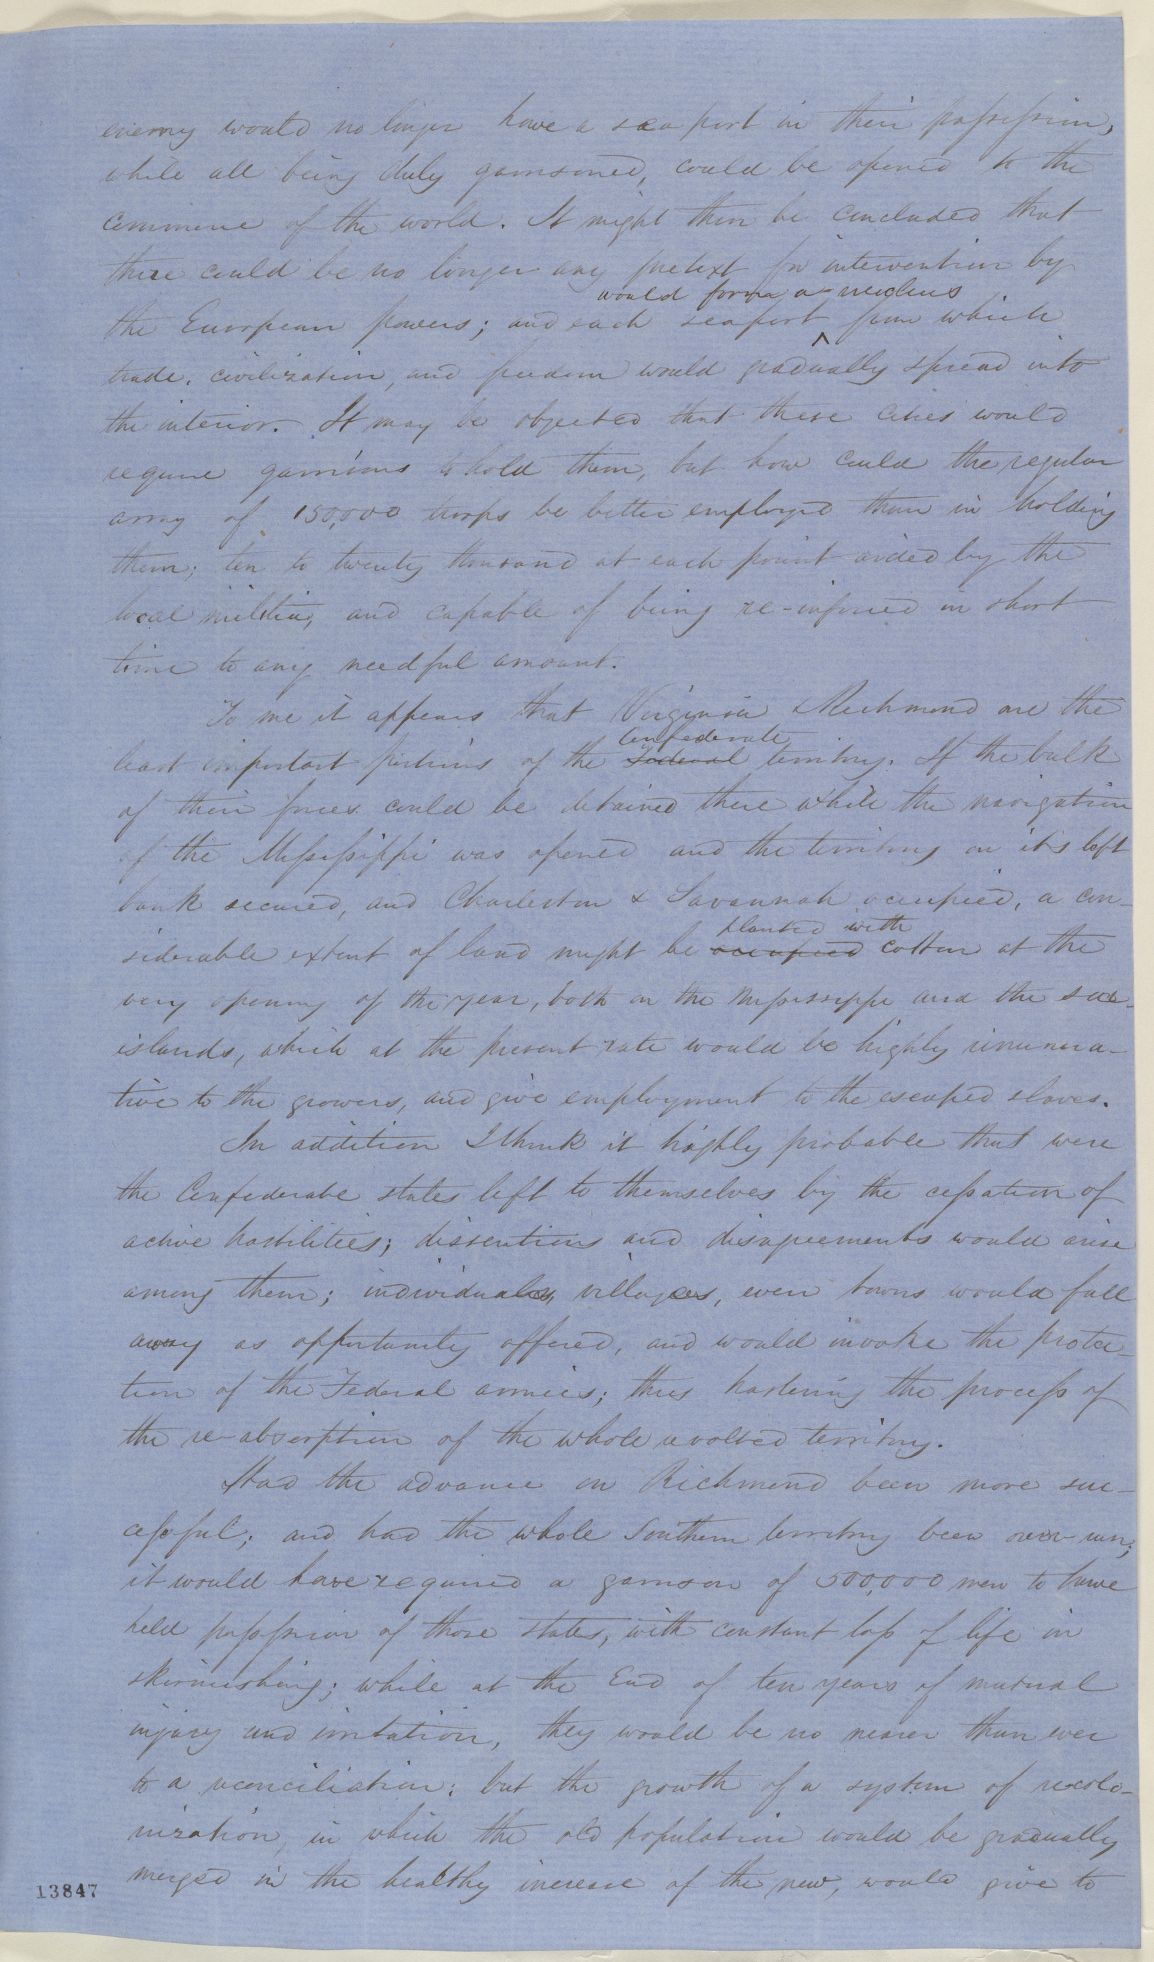 enemy would no longer have a sea port in their possession,
while all being duly garrisoned, could be opened to the
commerce of the world. It might then be concluded that
there could be no longer any pretext for intervention by
would form a nucleus
the European powers; and each seaport ^ from which
trade, civilization, and freedom would gradually spread into
the interior. It may be objected that these cities would
require garrisons to hold them, but how could the regular
army of 150,000 troops be better employed than in holding
them; ten to twenty thousand at each point aided by the
local militia, and capable of being re-inforced in short
time to any needful amount.
To me it appears that Virginia & Richmond are the
Confederate
least important portions of the Federal territory. If the bulk
of their forces could be detained there while the navigation
of the Mississippi was opened and the territory on its left
bank secured, and Charleston & Savannah occupied, a con-
planted with
siderable extent of land might be occupied cotton at the
very opening of the year, both on the Mississippi and the sea-
islands, which at the present rate would be highly remunera-
tive to the growers, and give employment to the escaped slaves.
In addition I think it highly probable that were
the Confederate states left to themselves by the cessation of
active hostilities; dissentions and disagreements would arise
among them; individuals, villages, even towns would fall
away as opportunity offered, and would invoke the protec-
tion of the Federal armies; thus hastening the process of
the re-absorption of the whole revolted territory.
Had the advance on Richmond been more suc-
cessful; and had the whole Southern territory been over-run;
it would have required a garrison of 500,000 men to have
held possession of those states, with constant loss of life in
skirmishing; while at the End of ten years of mutual
injury and irritation, they would be no nearer than ever
to a reconciliation: but the growth of a system of recolo-
nization, in which the old population would be gradually
merged in the healthy increase of the new, would give to
13847